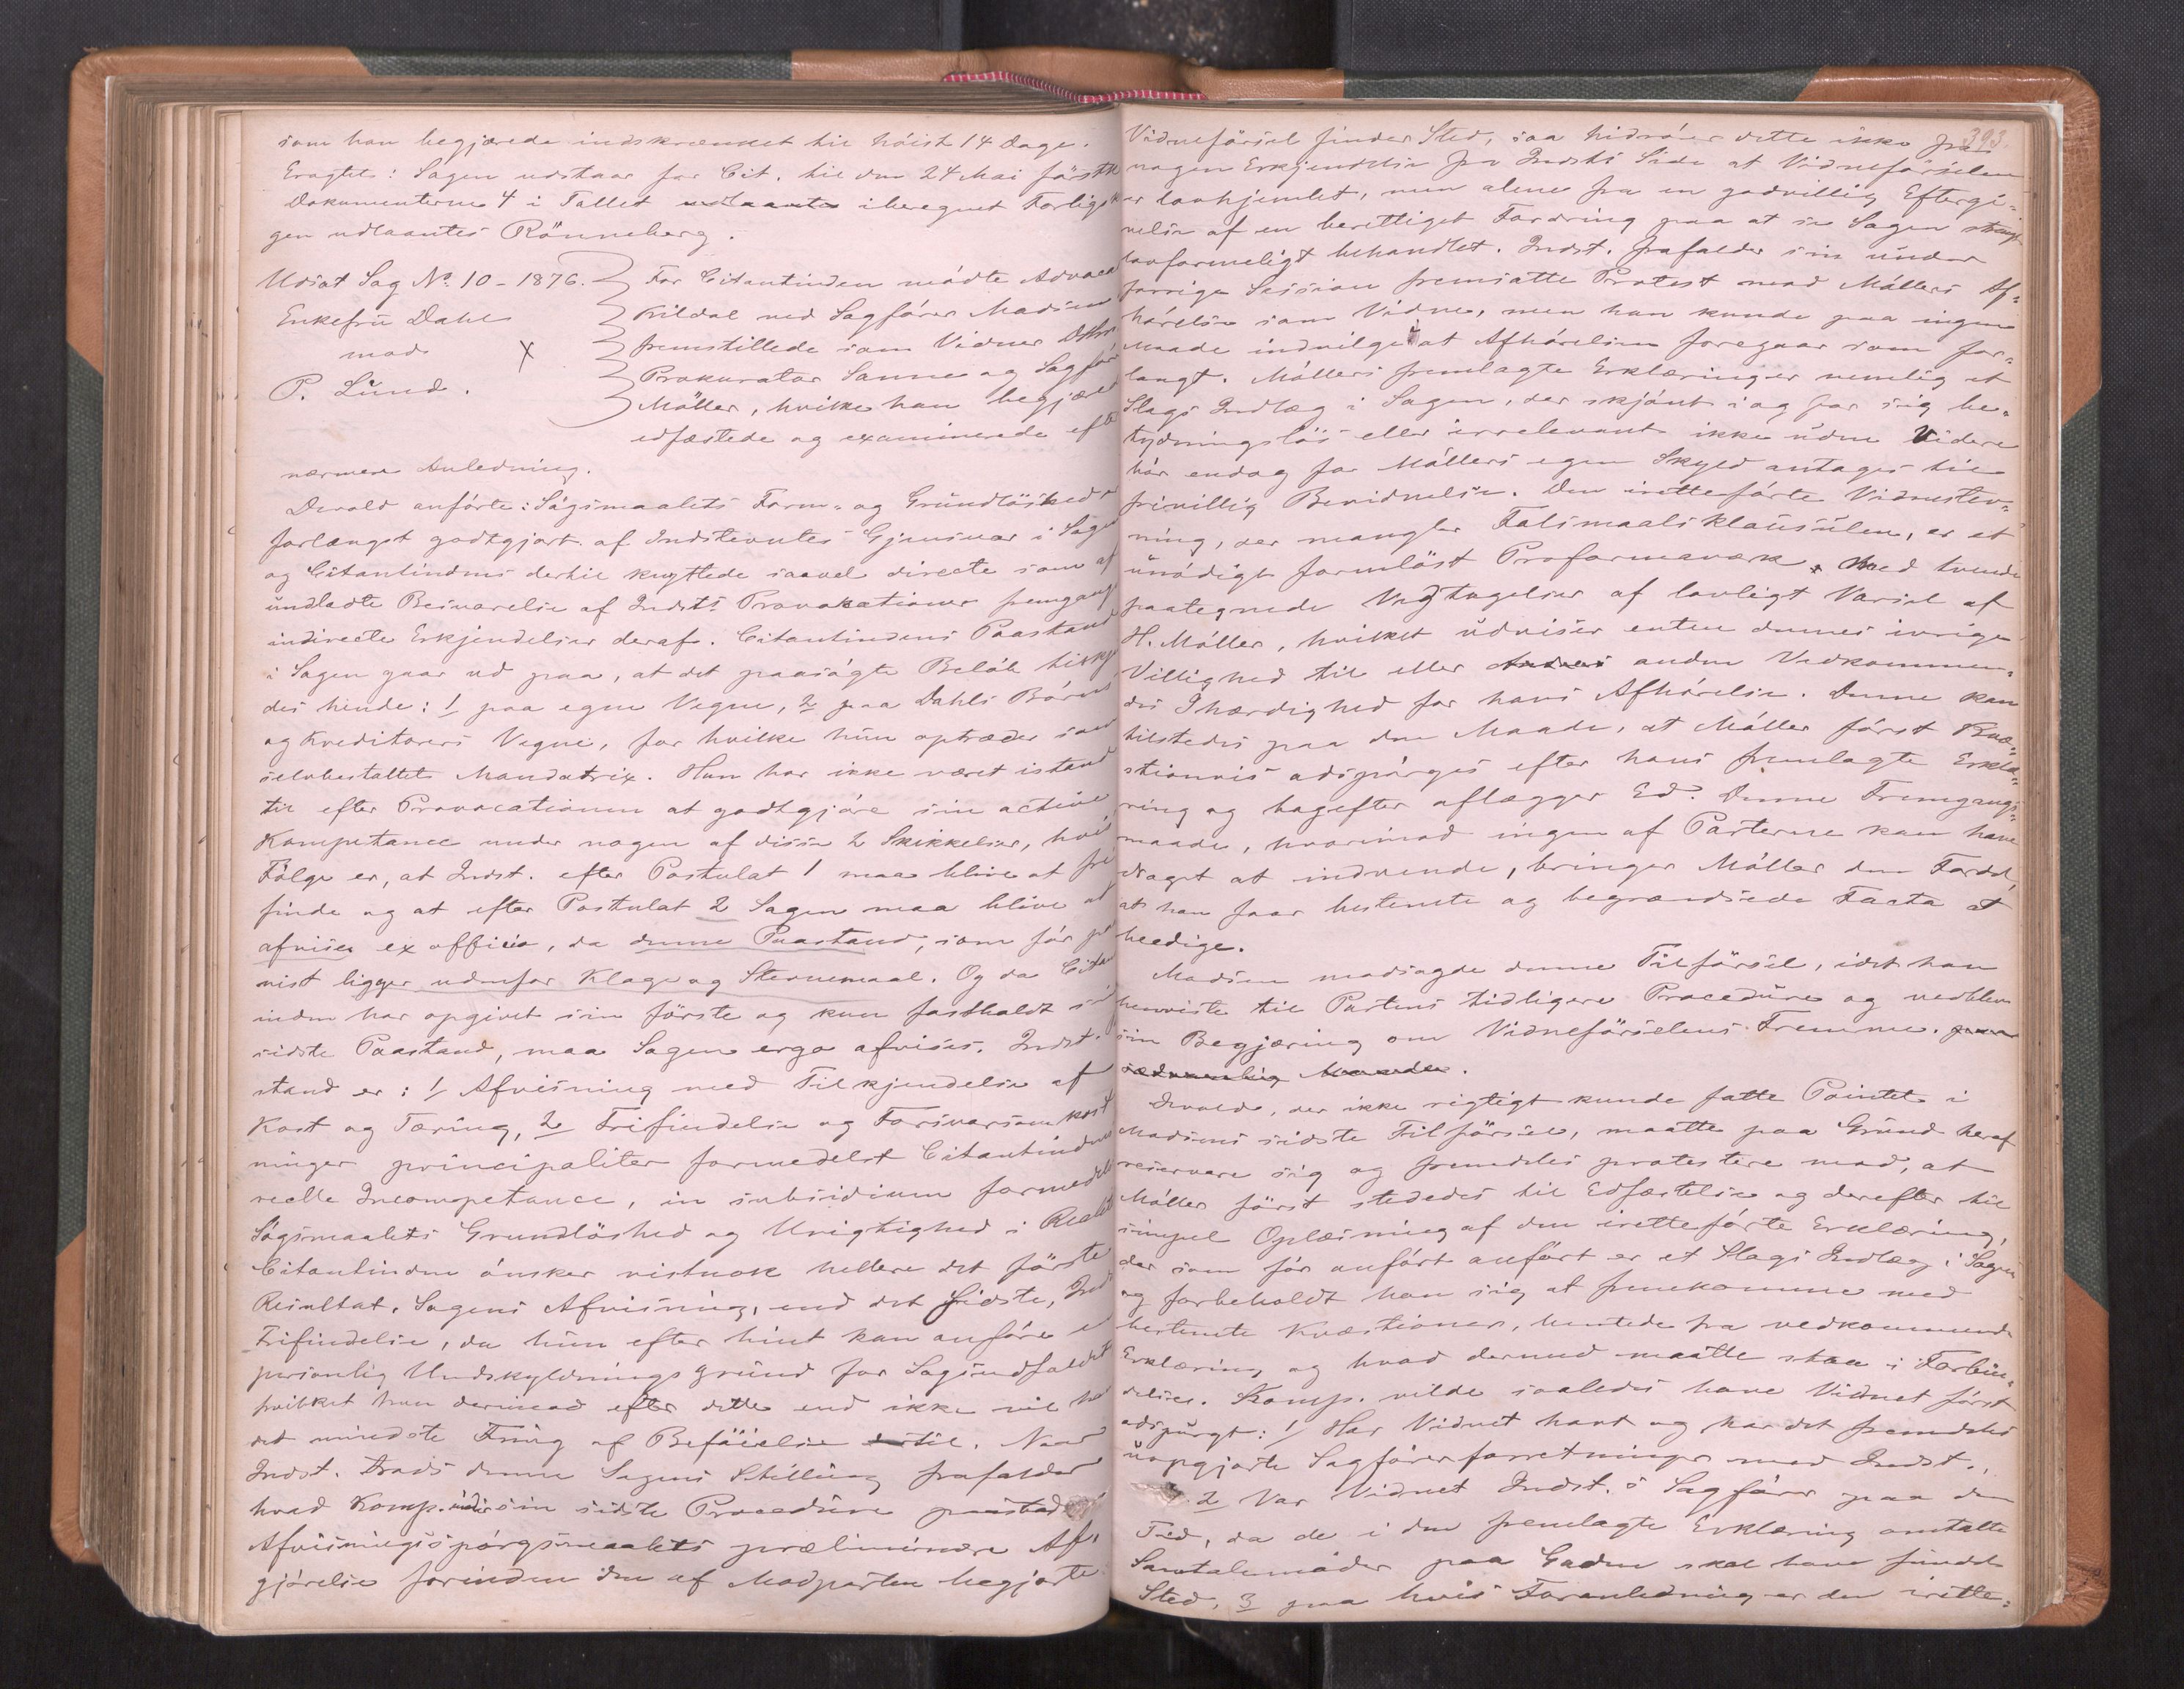 som han begjærede indskrænket til höist 14 Dage.
Eragtet: Sagen udstaar for Cit. til den 24 Mai förstk
Dokumenterne 4 i Tallet iberegnet Forligsk
gen udlaantes Rönneberg.
Udsat Sag No. 10 - 1876.
Enkefru Dahl
mod
P. Lund.
X
For Citantinden mödte Advoca
Kildal ved Sagförer Madsen
fremstillede som Vidner
Prokurator Sanne og Sagför
Möller, hvilke han begjæred
edfæstede og examinerede efte
nærmere Anledning.
Devold anförte: Sögsmaalets Form- og Grundlöshed er
forlængst godtgjort af Indstevntes Gjensvar i Sagen
og Citantindens dertil knyttede saavel directe som af
undladte Besvarelse af Indsts Provokationer fremgaaede
indirecte Erkjendelser deraf. Citantindens Paastand
i Sagen gaar ud paa, at det paasögte Belöb tilkje
des hende: 1/ paa egne Vegne, 2 paa Dahls Börns
og Kreditorers Vegne, for hvilke hun optræder som
selvbestaltet Mandatrix. Hun har ikke været istand
til efter Provocationen at godtgjöre sin active
Kompetance under nogen af disse 2 Skikkelser, hvis
Fölge er, at Indst. efter Postulat 1 maa blive at fri
finde og at efter Postulat 2 Sagen maa blive at
afvise ex officio, da denne Paastand, som för pa
vist ligger udenfor Klage og Stevnemaal. Og da Citan
inden har opgivet sin förste og kun fastholdt si
sidste Paastand, maa Sagen ergo afvises. Indsts
stand er: 1/ Afvisning med Tilkjendelse af
Kost og Tæring, 2 Frifindelse og Forsvarsomkost
ninger principaliter formedelst Citantindens
reelle Incompetance, in subsidium formedelst
Sögsmaalets Grundlöshed og Urigtighed i Realit
Citantinden önsker vistnok hellere det förste
Resultat, Sagens Afvisning, end det sidste, Inds
Frifindelse, da hun efter hint kan anföre e
personlig Undskyldningsgrund for Sagsudfaldet
hvilket hun derimod efter dette end ikke vil ha
det mindste Fnug af Beföielse til. Naar
Indst. trods denne Sagens Stilling frafalder
hvad Komp. under sin sidste Procedure paastod
Afvisningsspörgsmaalets præliminære Af-
gjörelse forinden den af Modparten begjærte
393.
Vidneförsel finder Sted, saa hidrörer dette ikke fra
nogen Erkjendelse fra Indsts Side at Vidneförselen
er lovhjemlet, men alene fra en godvillig Eftergi-
velse af en berettiget Fordring paa at se Sagen strengt
lovformeligt behandlet. Indst. frafalder sin under
forrige Session fremsatte Protest mod Möllers Af-
hörelse som Vidne, men han kunde paa ingen
Maade indvilge i at Afhörelsen foregaar som for-
langt. Möllers fremlagte Erklæring er nemlig et
Slags Indlæg i Sagen, der skjönt i og for sig be-
tydningslös eller irrelevant ikke uden Videre
bör endog for Möllers egen Skyld antages til
frivillig Bevidnelse. Den iretteförte Vidnestev-
ning, der mangler Falsmaalsklausulen, er et
unödigt formlöst Proformaværk, med tvende
paategnede Vedtagelser af lovligt Varsel af
H. Möller, hvilket udviser enten dennes ivrige
Villighed til eller anden Vedkommen-
des Ihærdighed for hans Afhörelse. Denne kan
tilstedes paa den Maade, at Möller först Kvæ-
stionvis adspörges efter hans fremlagte Erklæ-
ring og bagefter aflægger Ed. Denne Fremgangs-
maade, hvorimod ingen af Parterne kan have
Noget at indvende, bringer Möller den Fordel,
at han faar bestemte og begrændsede Facta at
beedige.
Madsen modsagde denne Tilförsel, idet han
henviste til Partens tidligere Procedure og vedblev
sin Begjæring om Vidneförselens Fremme.
Devold, der ikke rigtigt kunde fatte Pointet i
Madsens sidste Tilförsel, maatte paa Grund heraf
reservere sig og fremdeles protestere mod, at
Möller först stededes til Edfæstelse og derefter til
simpel Oplæsning af den iretteförte Erklæring,
der som för anfört anfört er et Slags Indlæg i Sagen
og forbeholdt han sig at fremkomme med
bestemte Kvæstioner, hentede fra vedkommende
Erklæring og hvad dermed maatte staa i Forbin-
delse. Komp. vilde saaledes have Vidnet först
adspurgt: 1/ Har Vidnet havt og har det fremdeles
uopgjorte Sagförerforretninger med Indst.,
2 Var Vidnet Indst.s Sagförer paa den
Tid, da de i den fremlagte Erklæring omtalte
Samtalemöder paa Gaden skal have fundet
Sted, 3 paa hvis Foranledning er den irette-